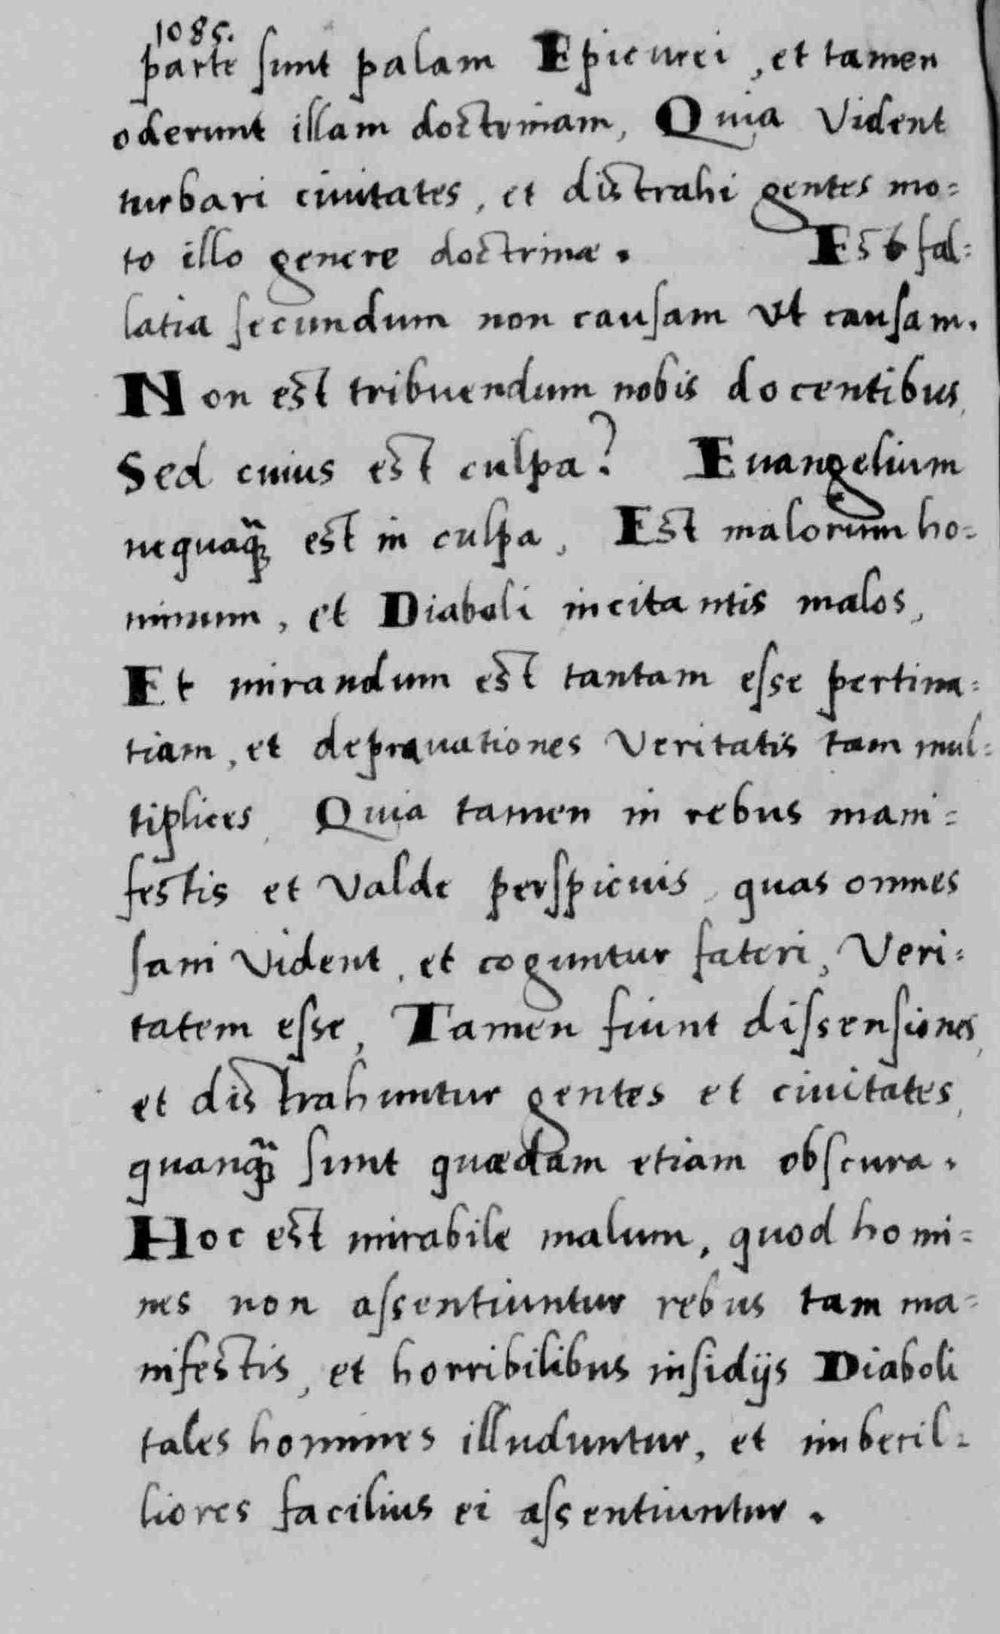 1085.
parte sunt palam Epicurei, et tamen
oderunt illam doctrinam, Quia Vident
turbari ciuitates, et distrahi gentes mo=
to illo genere doctrinæ. Est fal=
latia secundum non causam Vt causam.
Non est tribuendum nobis docentibus,
Sed cuius est culpa? Euangelium
nequaq̃ est in culpa, Est malorum ho=
minum, et Diaboli incitantis malos,
Et mirandum est tantam esse pertina=
tiam, et deprauationes Veritatis tam mul=
tiplices, Quia tamen in rebus mani=
festis et Valde perspicuis, quas omnes
sani Vident, et coguntur fateri, Veri=
tatem esse, Tamen fiunt dissensiones,
et distrahuntur gentes et ciuitates,
quanq̃ sunt quædam etiam obscura.
Hoc est mirabile malum, quod homi=
nes non assentiuntur rebus tam ma=
nifestis, et horribilibus insidijs Diaboli
tales homines illuduntur, et imbecil=
liores facilius ei assentiuntur.